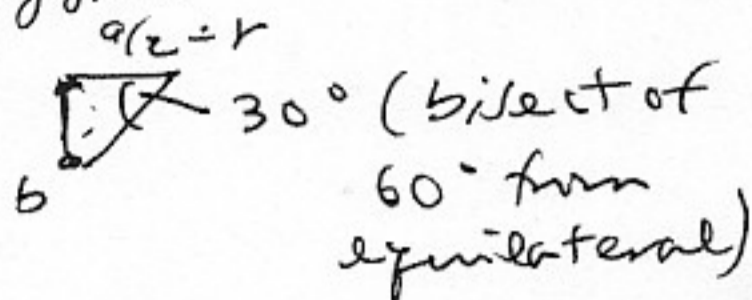 a/2 = r
30° (bisect of
b
60° from
equilateral)